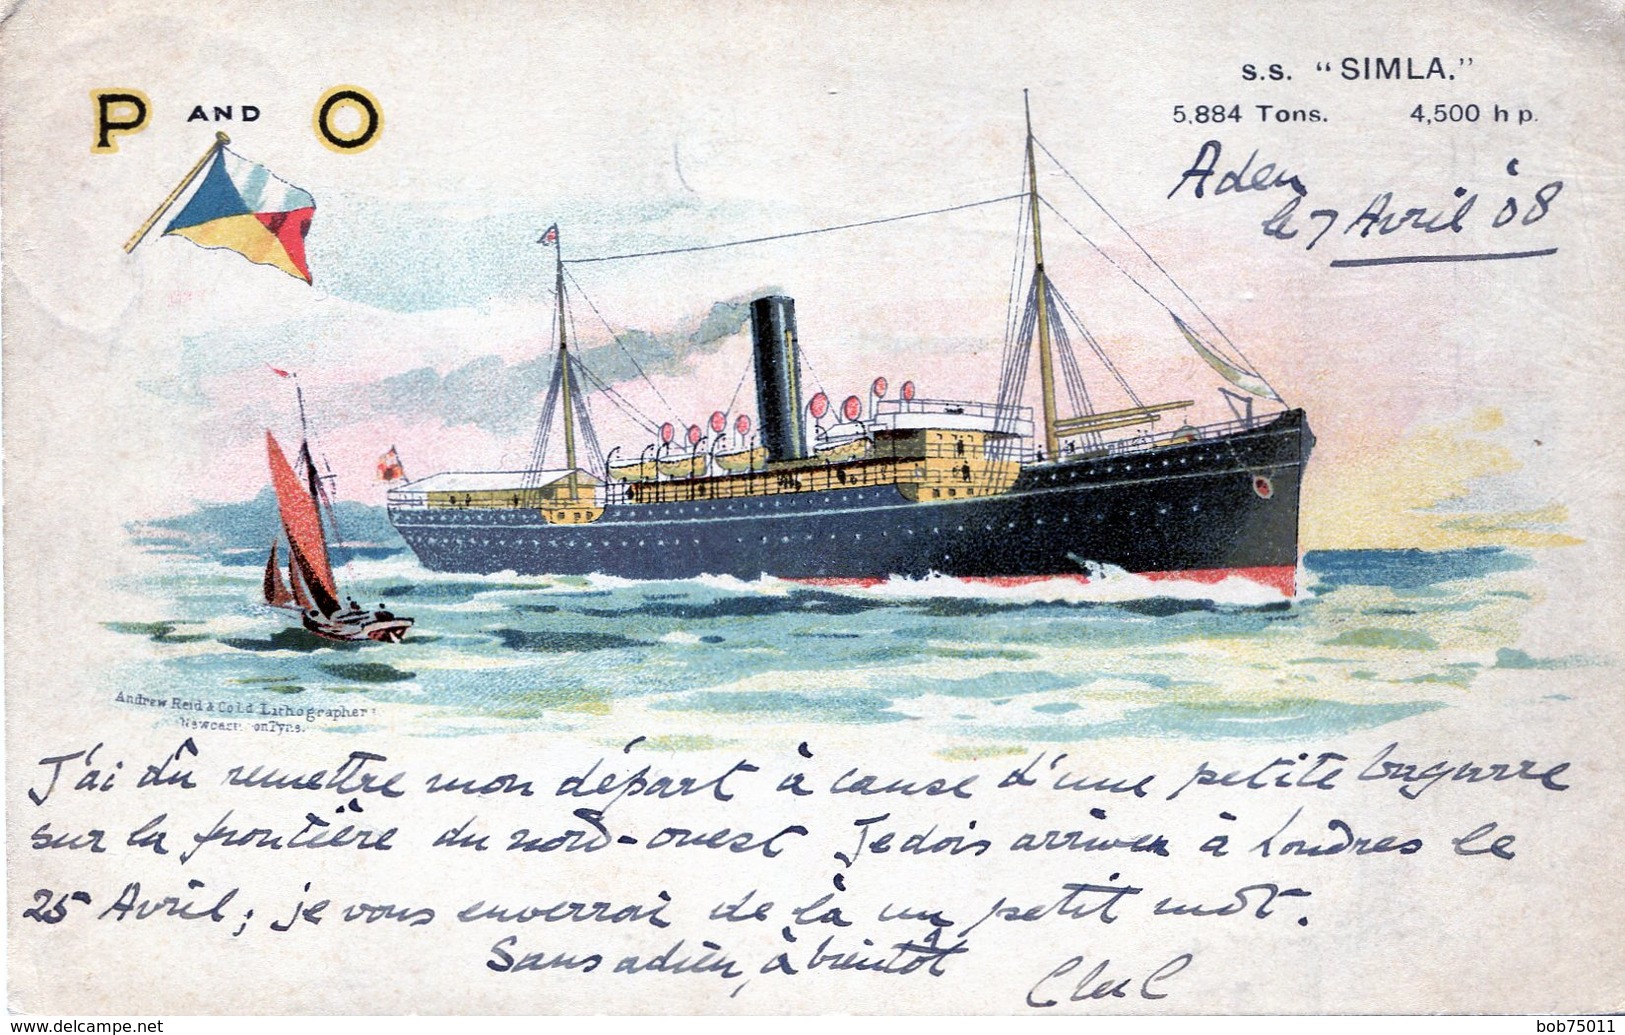 P AND O
s.s. "SIMLA."
5,884 Tons. 4,500 h p.
Aden
le 7 Avril 08
Andrew Reid & Co Ld Lithographer
Newcast onTyne.
J'ai dû remettre mon départ à cause d'une petite bagarre
sur la frontière du nord-ouest Je dois arriver à Londres le
25 Avril; je vous enverrai de là un petit mot.
Sans adieu, à bientôt
www.delcampe.net
bob75011